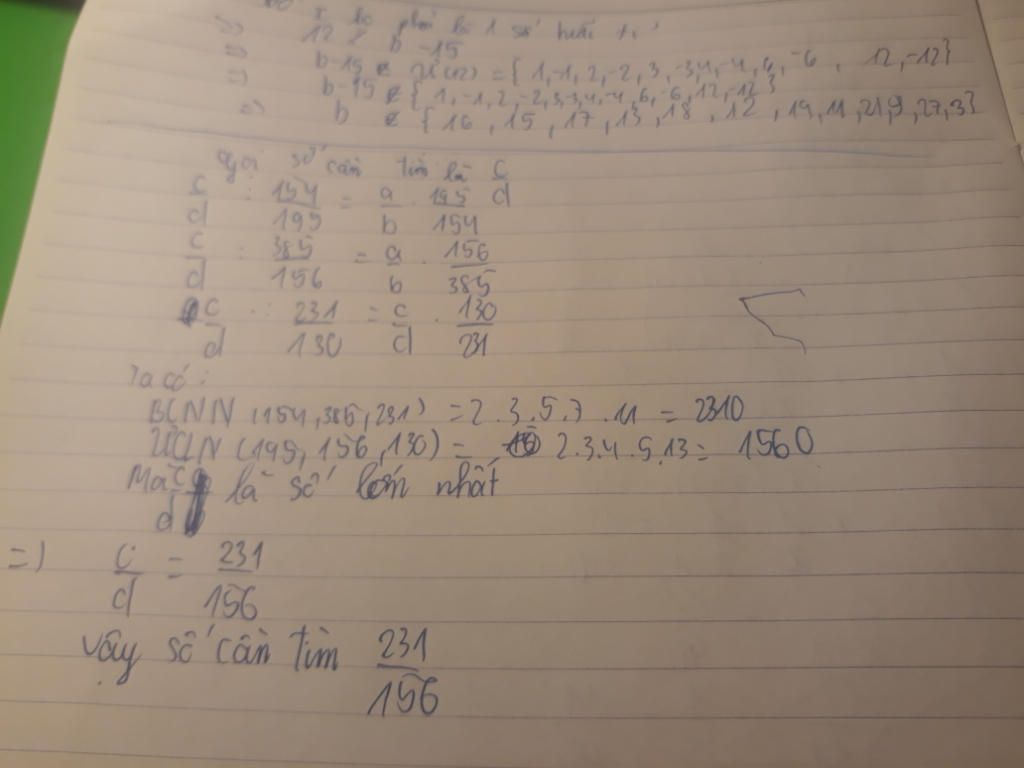 => 12 ⋮ b - 15
=> b-15 ∈ Ư(12) = {1,-1,2,-2,3,-3,4,-4,6,-6, 12,-12}
=> b-15 ∈ {1,-1,2,-2,3,-3,4,-4,6,-6,12,-12}
=> b ∈ {16, 15, 17, 13, 18, 12, 19, 11, 21, 9, 27, 3}
Gọi số cần tìm là c/d
c/d : 154/195 = a/b . 195/154
c/d : 385/156 = a/b . 156/385
c/d : 231/130 = c/d . 130/231
Ta có:
BCNN (154,385,231) = 2.3.5.7.11 = 2310
ƯCLN (195,156,130) = 2.3.4.5.13 = 1560
Mà c/d là số lớn nhất
=> c/d = 231/156
Vậy số cần tìm 231/156